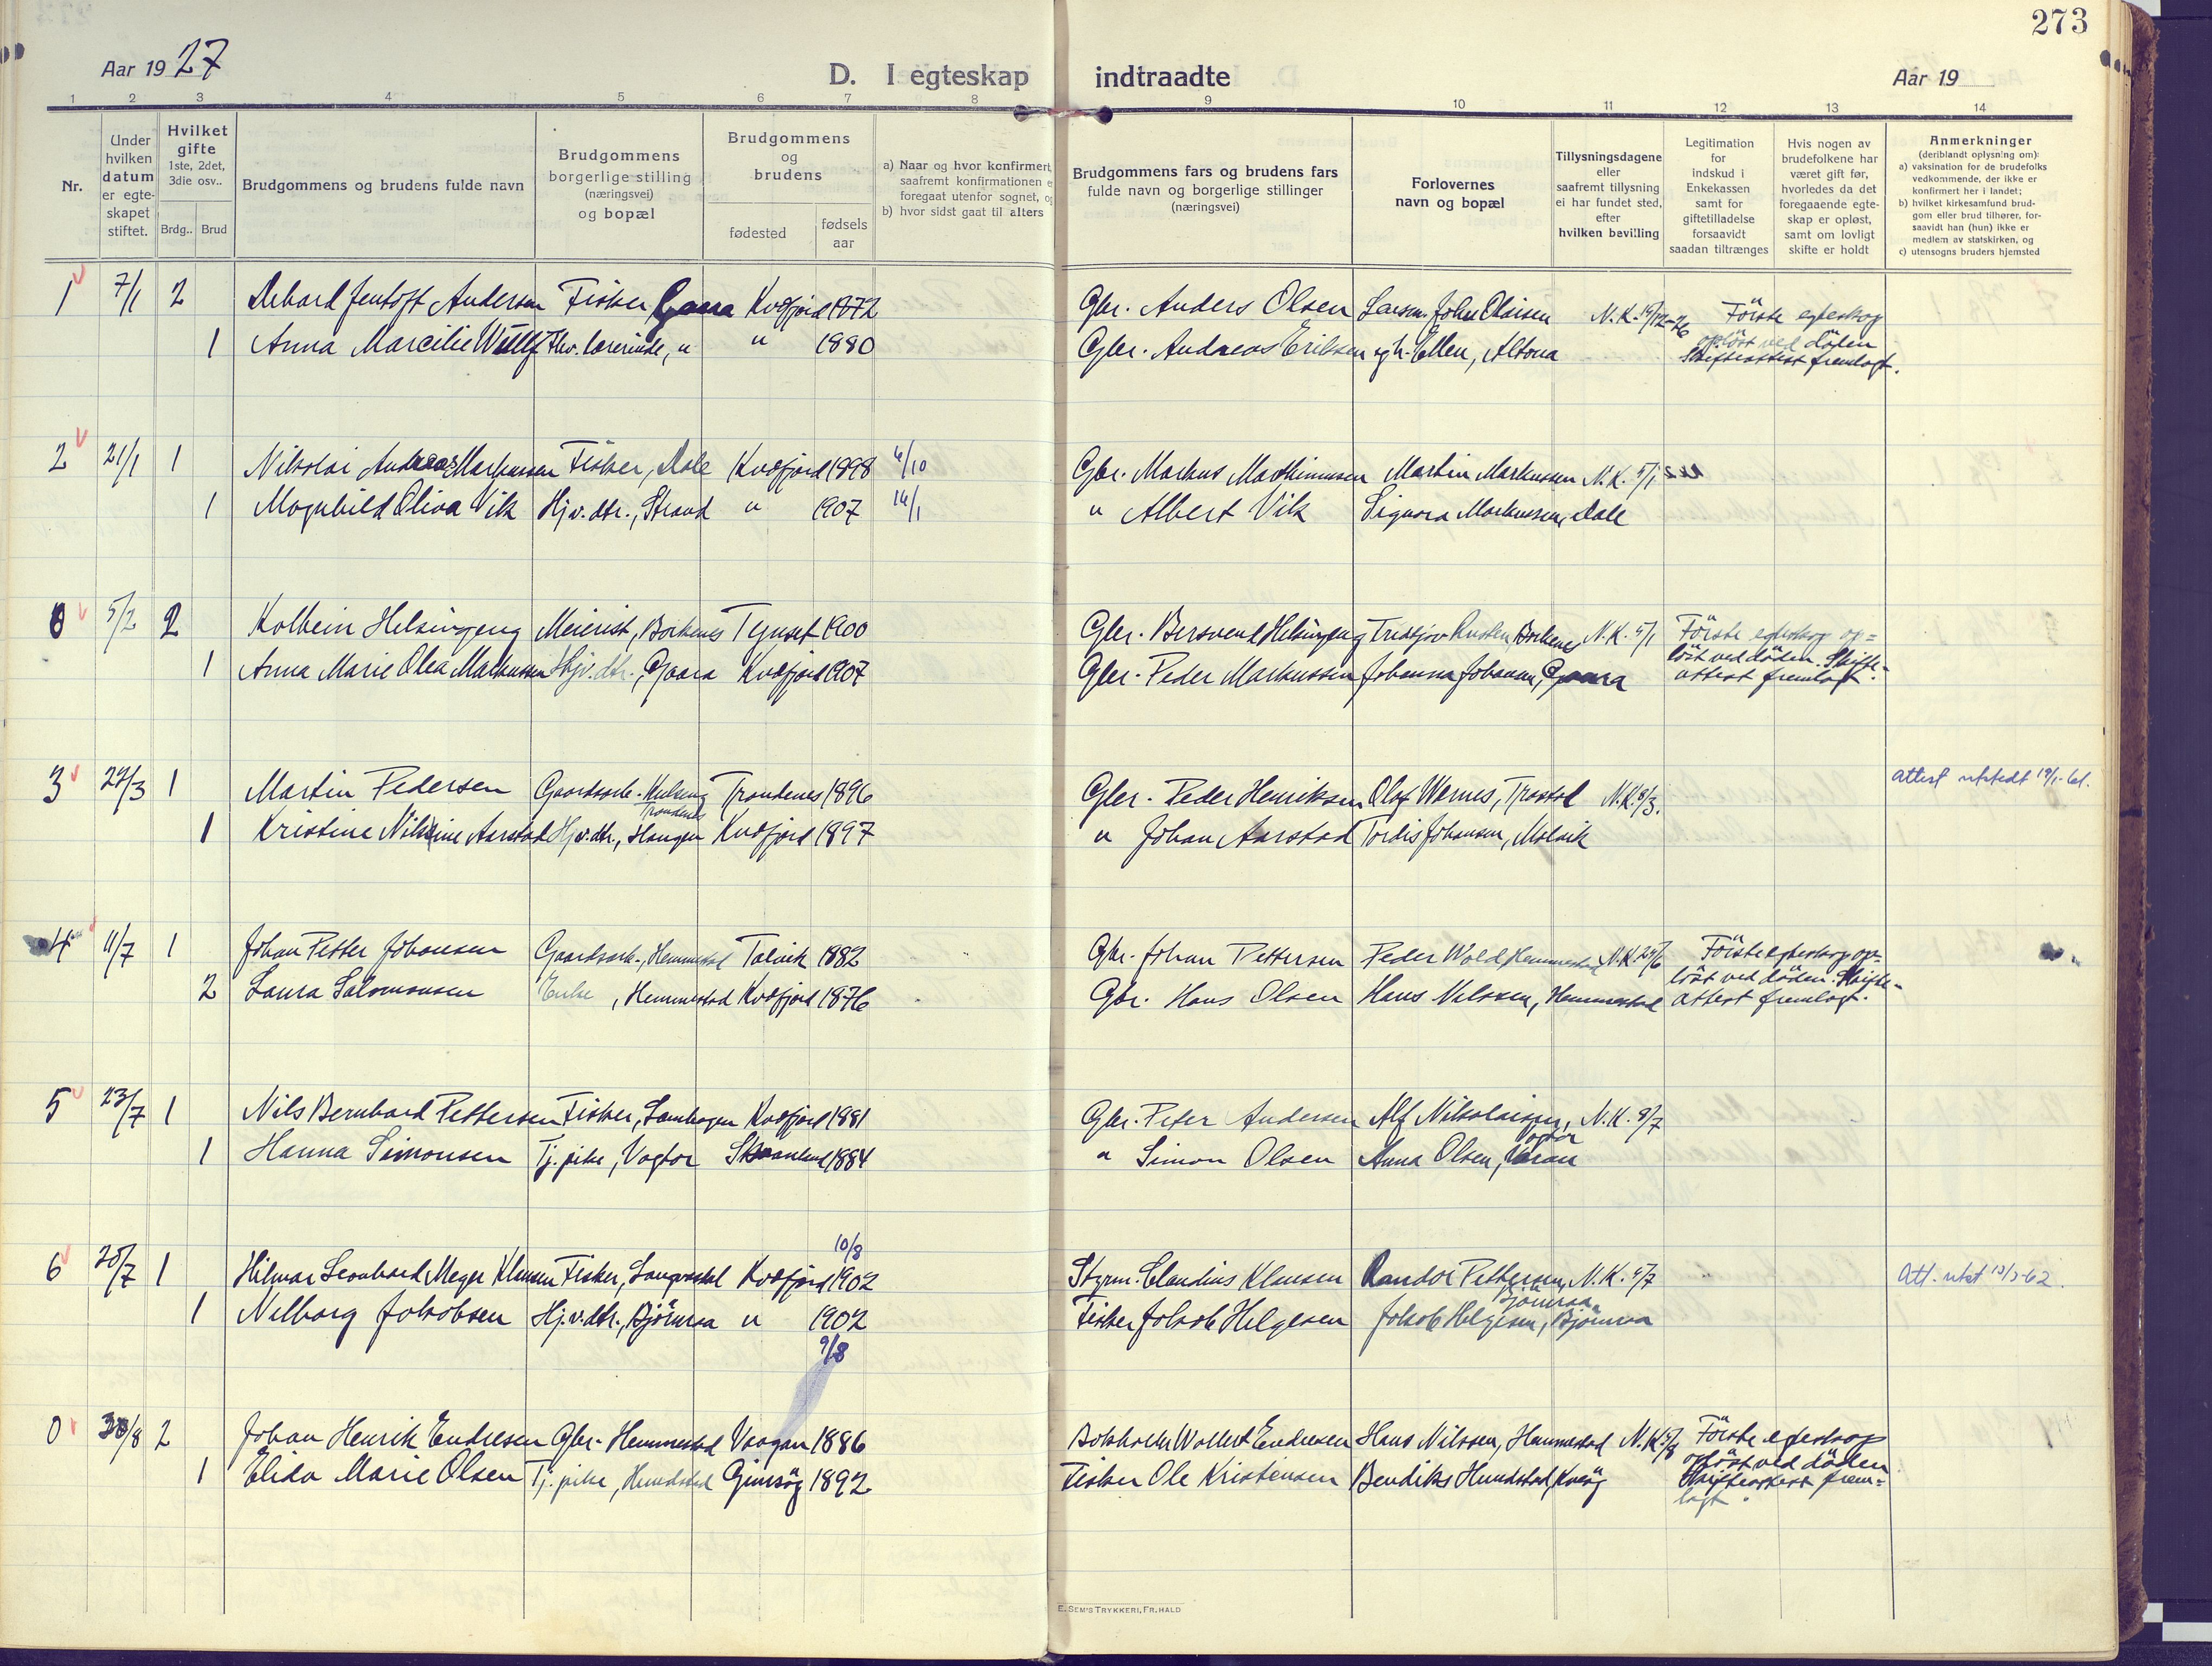 273
Aar 19 27
D. I egteskap indtraadte
Aar 19
1 2 3 4 5 6 7 8 9 10 11 12 13 14
Nr.
Under hvilken datum er egte-skapet stiftet.
Hvilket gifte 1ste, 2det, 3die osv..
Brdg.. Brud
Brudgommens og brudens fulde navn
Brudgommens borgerlige stilling (næringsvei) og bopæl
Brudgommens og brudens
fødested
fødsels aar
a) Naar og hvor konfirmert, saafremt konfirmationen foregaat utenfor sognet,
b) hvor sidst gaat til alters
Brudgommens fars og brudens fars fulde navn og borgerlige stillinger (næringsvei)
Forlovernes navn og bopæl
Tillysningsdagene eller saafremt tillysning ei har fundet sted, efter hvilken bevilling
Legitimation for indskud i Enkekassen samt for giftetilladelse forsaavidt saadan tiltrænges
Hvis nogen av brudefolkene har været gift før, hvorledes da det foregaaende egte-skap er opløst, samt om lovligt skifte er holdt
Anmerkninger (deriblandt oplysning om):
a) vaksination for de brudefolks vedkommende, der ikke er konfirmert her i landet;
b) hvilket kirkesamfund brud-gom eller brud tilhører, for-saavidt han (hun) ikke er medlem av statskirken, og
c) utensogns bruders hjemsted
1 7/1 2 Jentoft Andersen Fisker Gaara Kvæfjord 1872 Gbr. Anders Olsen Johs Olaisen N.K. Første egteskap
1 Anna Marcilie Wulff Fhv. lærerinde, " " 1880 Gbr. Andreas Eriksen Ellen, Altona opløst ved døden
Skifteattest fremlagt.
2 21/1 1 Nikolai Andreas Markussen Fisker, Dale Kvæfjord 1898 4/10 Gbr. Markus Martin Markussen N.K. 5/1
1 Magnhild Oliva Vik Hj.v.dtr., Strand " 1907 14/1 " Albert Vik Signora Markussen, Dale
0 5/2 2 Kolbein Helsingeng Meierist, Borkenes Tynset 1900 Gbr. Bersvend Helsingeng Borkenes N.K. 5/1 Første egteskap op=
1 Anna Marie Olea Markussen Hj.v.dtr., Gaara Kvæfjord 1907 Gbr. Peder Markussen Johanna Johansen, Gaara løst ved døden. Skifte-
attest fremlagt.
3 27/3 1 Martin Pedersen Gaardsarb. Trondenes 1896 Gbr. Peder Henriksen Olaf Wernes, N.K. 8/3. Attest utstedt 19/1-61.
Trondenes
1 Kristine Nilsine Aarstad Hj.v.dtr., Haugen Kvæfjord 1897 " Johan Aarstad Tordis Johansen, Molvik
4 11/7 1 Johan Petter Johansen Gaardsarb., Hemmestad Talvik 1882 Gbr. Johan Pettersen Peder Wold, Hemmestad N.K. 24/6 Første egteskap op-
2 Laura Salomonsen Enke, Hemmestad Kvæfjord 1876 Gbr. Hans Olsen Hans Nilssen, Hemmestad løst ved døden. Skifte-
attest fremlagt.
5 23/7 1 Nils Bernhard Pettersen Fisker, Kvæfjord 1881 Gbr. Peter Andersen Alf Nikolaisen, N.K. 9/7
1 Hanna Simonsen Tj. pike, Vogtor Skaanland 1884 " Simon Olsen Anna Olsen,
10/8
6 20/7 1 Hilmar Leonhard Meyer Klausen Fisker, Kvæfjord 1902 Styrm. Claudius Klausen Randor Pettersen, N.K. 4/7 Att. utst 13/3-62.
Bjørnraa
1 Nelborg Jakobsen Hj.v.dtr., Bjørnraa " 1902 Fisker Jakob Helgesen Jakob Helgesen, Bjørnraa
9/8
0 30/8 2 Johan Henrik Endresen Gbr. Hemmestad Vaagan 1886 Endresen Hans Nilssen, Hemmestad N.K. Første egteskap
1 Elida Marie Olsen Tj. pike, Hundstad Gimsøy 1892 Fisker Ole Kristensen Bendiks Hundstad, Kveøy opløst ved døden
Skifteattest frem=
lagt.
E. SEM'S TRYKKERI, FR.HALD